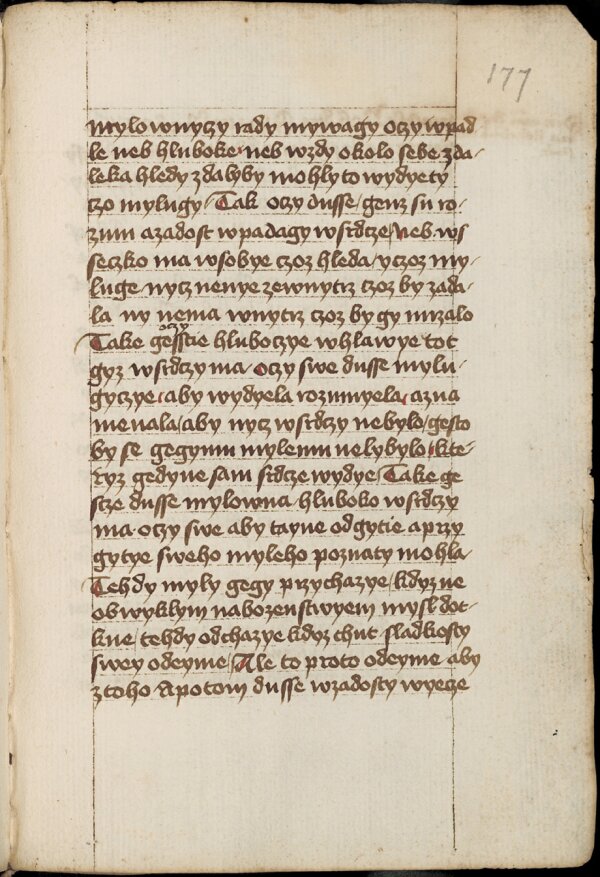 177
mylownyczy rady mywagy oczy wpad
le neb hluboke neb wzdy okolo sebe zda-
leka hledy zdalyby mohly to wydyety
czo mylugy Tak oczy dusse genz su ro-
zum a zadost wpadagy w srdcze neb ws
seczko ma w sobye czoz hleda y czoz my-
luge nycz nenye zewnytrz czoz by zada-
la ny nema wnytrz czoz by gy mrzalo
Take gesstie oczy hluboczye w hlawye tot
gyz w srdczy ma oczy swe dusse mylu-
gyczye aby wydyela rozumyela a zna
menala aby nycz w srdczy nebylo gesto
by se gegymu mylemu nelybylo kte-
ryz gedyne sam srdcze wydye Take ge
stze dusse mylowna hluboko w srdczy
ma oczy swe aby tayne odgytie a przy
gytye sweho myleho poznaty mohla
Tehdy myly gegy przychazye kdyz ne
obwyklym nabozenstwyem mysl dot-
kne tehdy odchazye kdyz chut sladkosty
swey odeyme Ale to proto odeyme aby
z toho Apotom dusse w zadosty wyecze